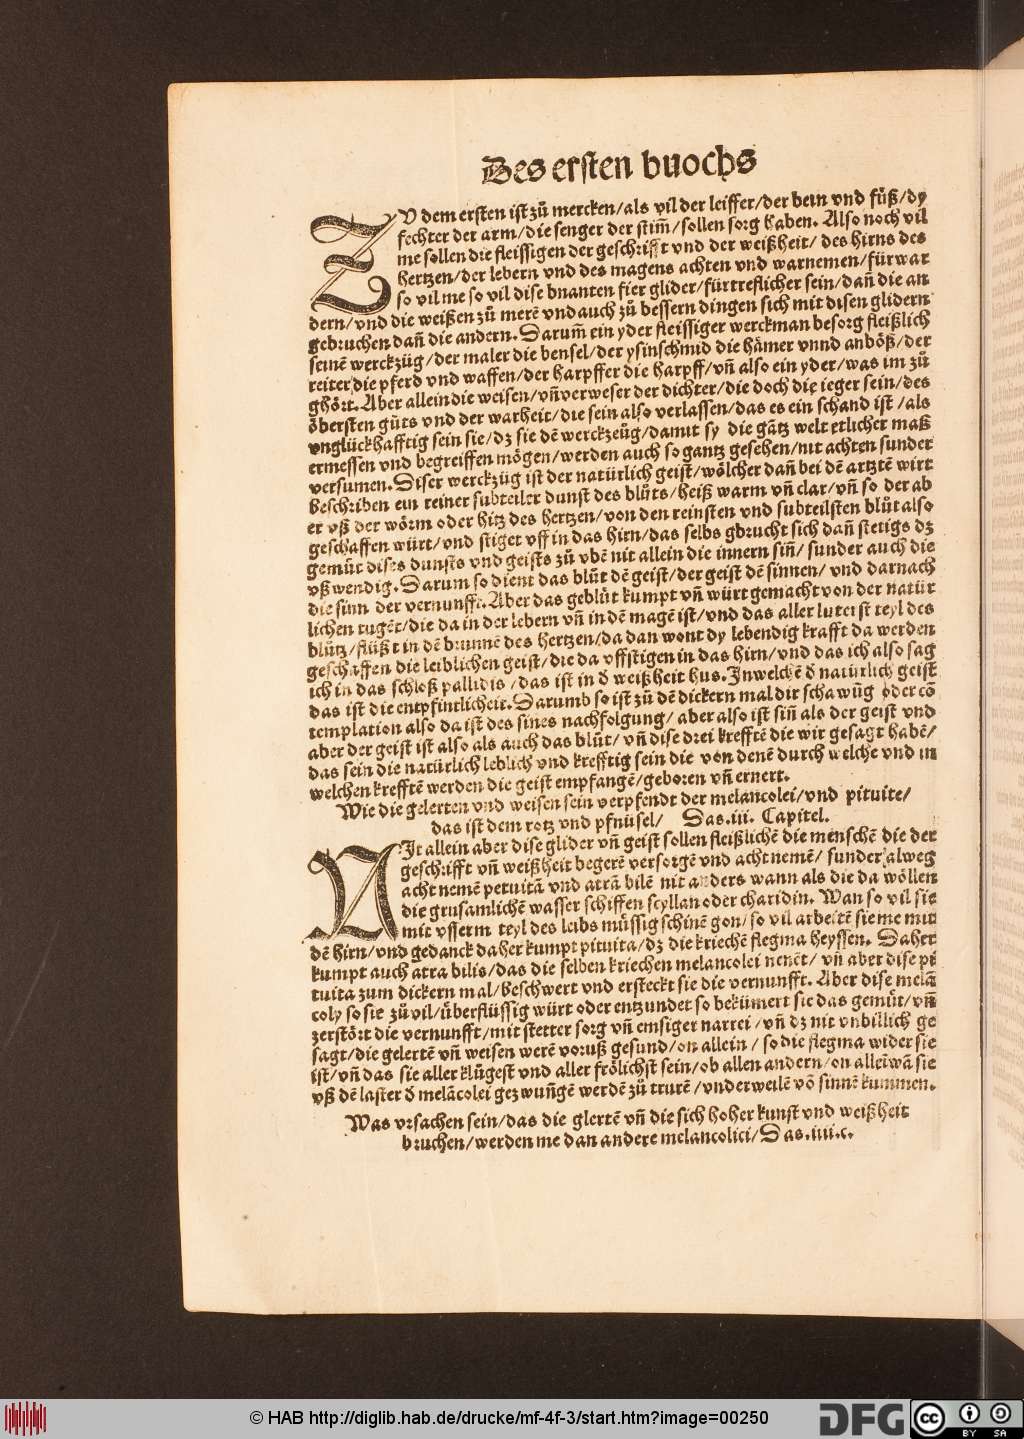 Des ersten buochs
ZV dem ersten ist zů mercken/als vil der leiffer/der bein vnd fůß/dy
fechter der arm/die senger der stim̄/sollen sorg haben. Also noch vil
me sollen die fleissigen der geschrifft vnd der weißheit/des hirns des
hertzen/der lebern vnd des magens achten vnd warnemen/fürwar
so vil me so vil dise bnanten fier glider/fürtreflicher sein/dañ die an
dern/vnd die weißen zů merē vnd auch zů bessern dingen sich mit disen glidern
gebruchen dañ die andern. Darum̄ ein yder fleissiger werckman besorg fleißlich
seinē werckzüg/der maler die bensel/der ysinschmid die hämer vnnd anböß/der
reiter die pferd vnd waffen/der harpffer die harpff/vñ also ein yder/was im zů
ghört. Aber allein die weisen/vñ verweser der dichter/die doch die ieger sein/des
öbersten gůts vnd der warheit/die sein also verlassen/das es ein schand ist/als
vnglückhafftig sein sie/dz sie dē werckzeüg/damit sy die gātz welt etlicher maß
ermessen vnd begreiffen mögen/werden auch so gantz gesehen/nit achten sunder
versumen. Diser werckzüg ist der natürlich geist/wölcher dañ bei dē artztē wirt
beschriben ein reiner subteiler dunst des blůts/heiß warm vñ clar/vñ so der ab
er vß der wörm oder hitz des hertzen/von den reinsten vnd subteilsten blůt also
geschaffen würt/vnd stiget vff in das hirn/das selbs gbrucht sich dañ stetigs dz
gemüt dises dunsts vnd geists zů vbē nit allein die innern siñ/sunder auch die
vßwendig. Darum so dient das blůt dē geist/der geist dē sinnen/vnd darnach
die sinn der vernunfft. Aber das geblůt kumpt vñ würt gemacht von der natür
lichen tugēt/die da in der lebern vñ in dē magē ist/vnd das aller luterst teyl des
blůtz/flüßt in dē brunnē des hertzen/da dan wont dy lebendig krafft da werden
geschaffen die leiblichen geist/die da vffstigen in das hirn/vnd das ich also sag
ich in das schloß pallidis/das ist in d weißheit hus. In welchē d natürlich geist
das ist die entpfintlicheit. Darumb so ist zů dē dickern mal dir schawūg oder cō
templation also da ist des sines nachfolgung/aber also ist siñ als der geist vnd
aber der geist ist also als auch das blůt/vñ dise drei krefftē die wir gesagt habē/
das sein die natürlich leblich vnd krefftig sein die von denē durch welche vnd in
welchen krefftē werden die geist empfangē/geboren vñ ernert.
Wie die gelerten vnd weisen sein verpfendt der melancolei/vnd pituite/
das ist dem rotz vnd pfnüsel/ Das .iii. Capitel.
NIt allein aber dise glider vñ geist sollen fleißlichē die menschē die der
geschrifft vñ weißheit begerē versorgē vnd acht nemē/sunder alweg
acht nemē petuitā vnd atrā bilē nit anders wann als die da wöllen
die grusamlichē wasser schiffen scyllan oder charidin. Wan so vil sie
mit vsserm teyl des leibs müssig schinē gon/so vil arbeitē sie me mit
dē hirn/vnd gedanck daher kumpt pituita/dz die kriechē flegma heyssen. Daher
kumpt auch atra bilis/das die selben kriechen melancolei nenēt/vñ aber dise pi
tuita zum dickern mal/beschwert vnd ersteckt sie die vernunfft. Aber dise melā
coly so sie zů vil/überflüssig würt oder entzundet so bekümert sie das gemüt/vñ
zerstört die vernunfft/mit stetter sorg vñ emsiger narrei/vñ dz nit vnbillich ge
sagt/die gelertē vñ weisen werē voruß gesund/on allein/so die flegma wider sie
ist/vñ das sie aller klügest vnd aller frölichst sein/ob allen andern/on alleī wā sie
vß dē laster d melācolei gezwuñgē werdē zů trurē/vnderweilē vō sinnē kummen.
Was vrsachen sein/das die glertē vñ die sich hoher kunst vnd weißheit
bruchen/werden me dan andere melancolici/Das .iiii. c.
© HAB http://diglib.hab.de/drucke/mf-4f-3/start.htm?image=00250
DFG
cc BY SA